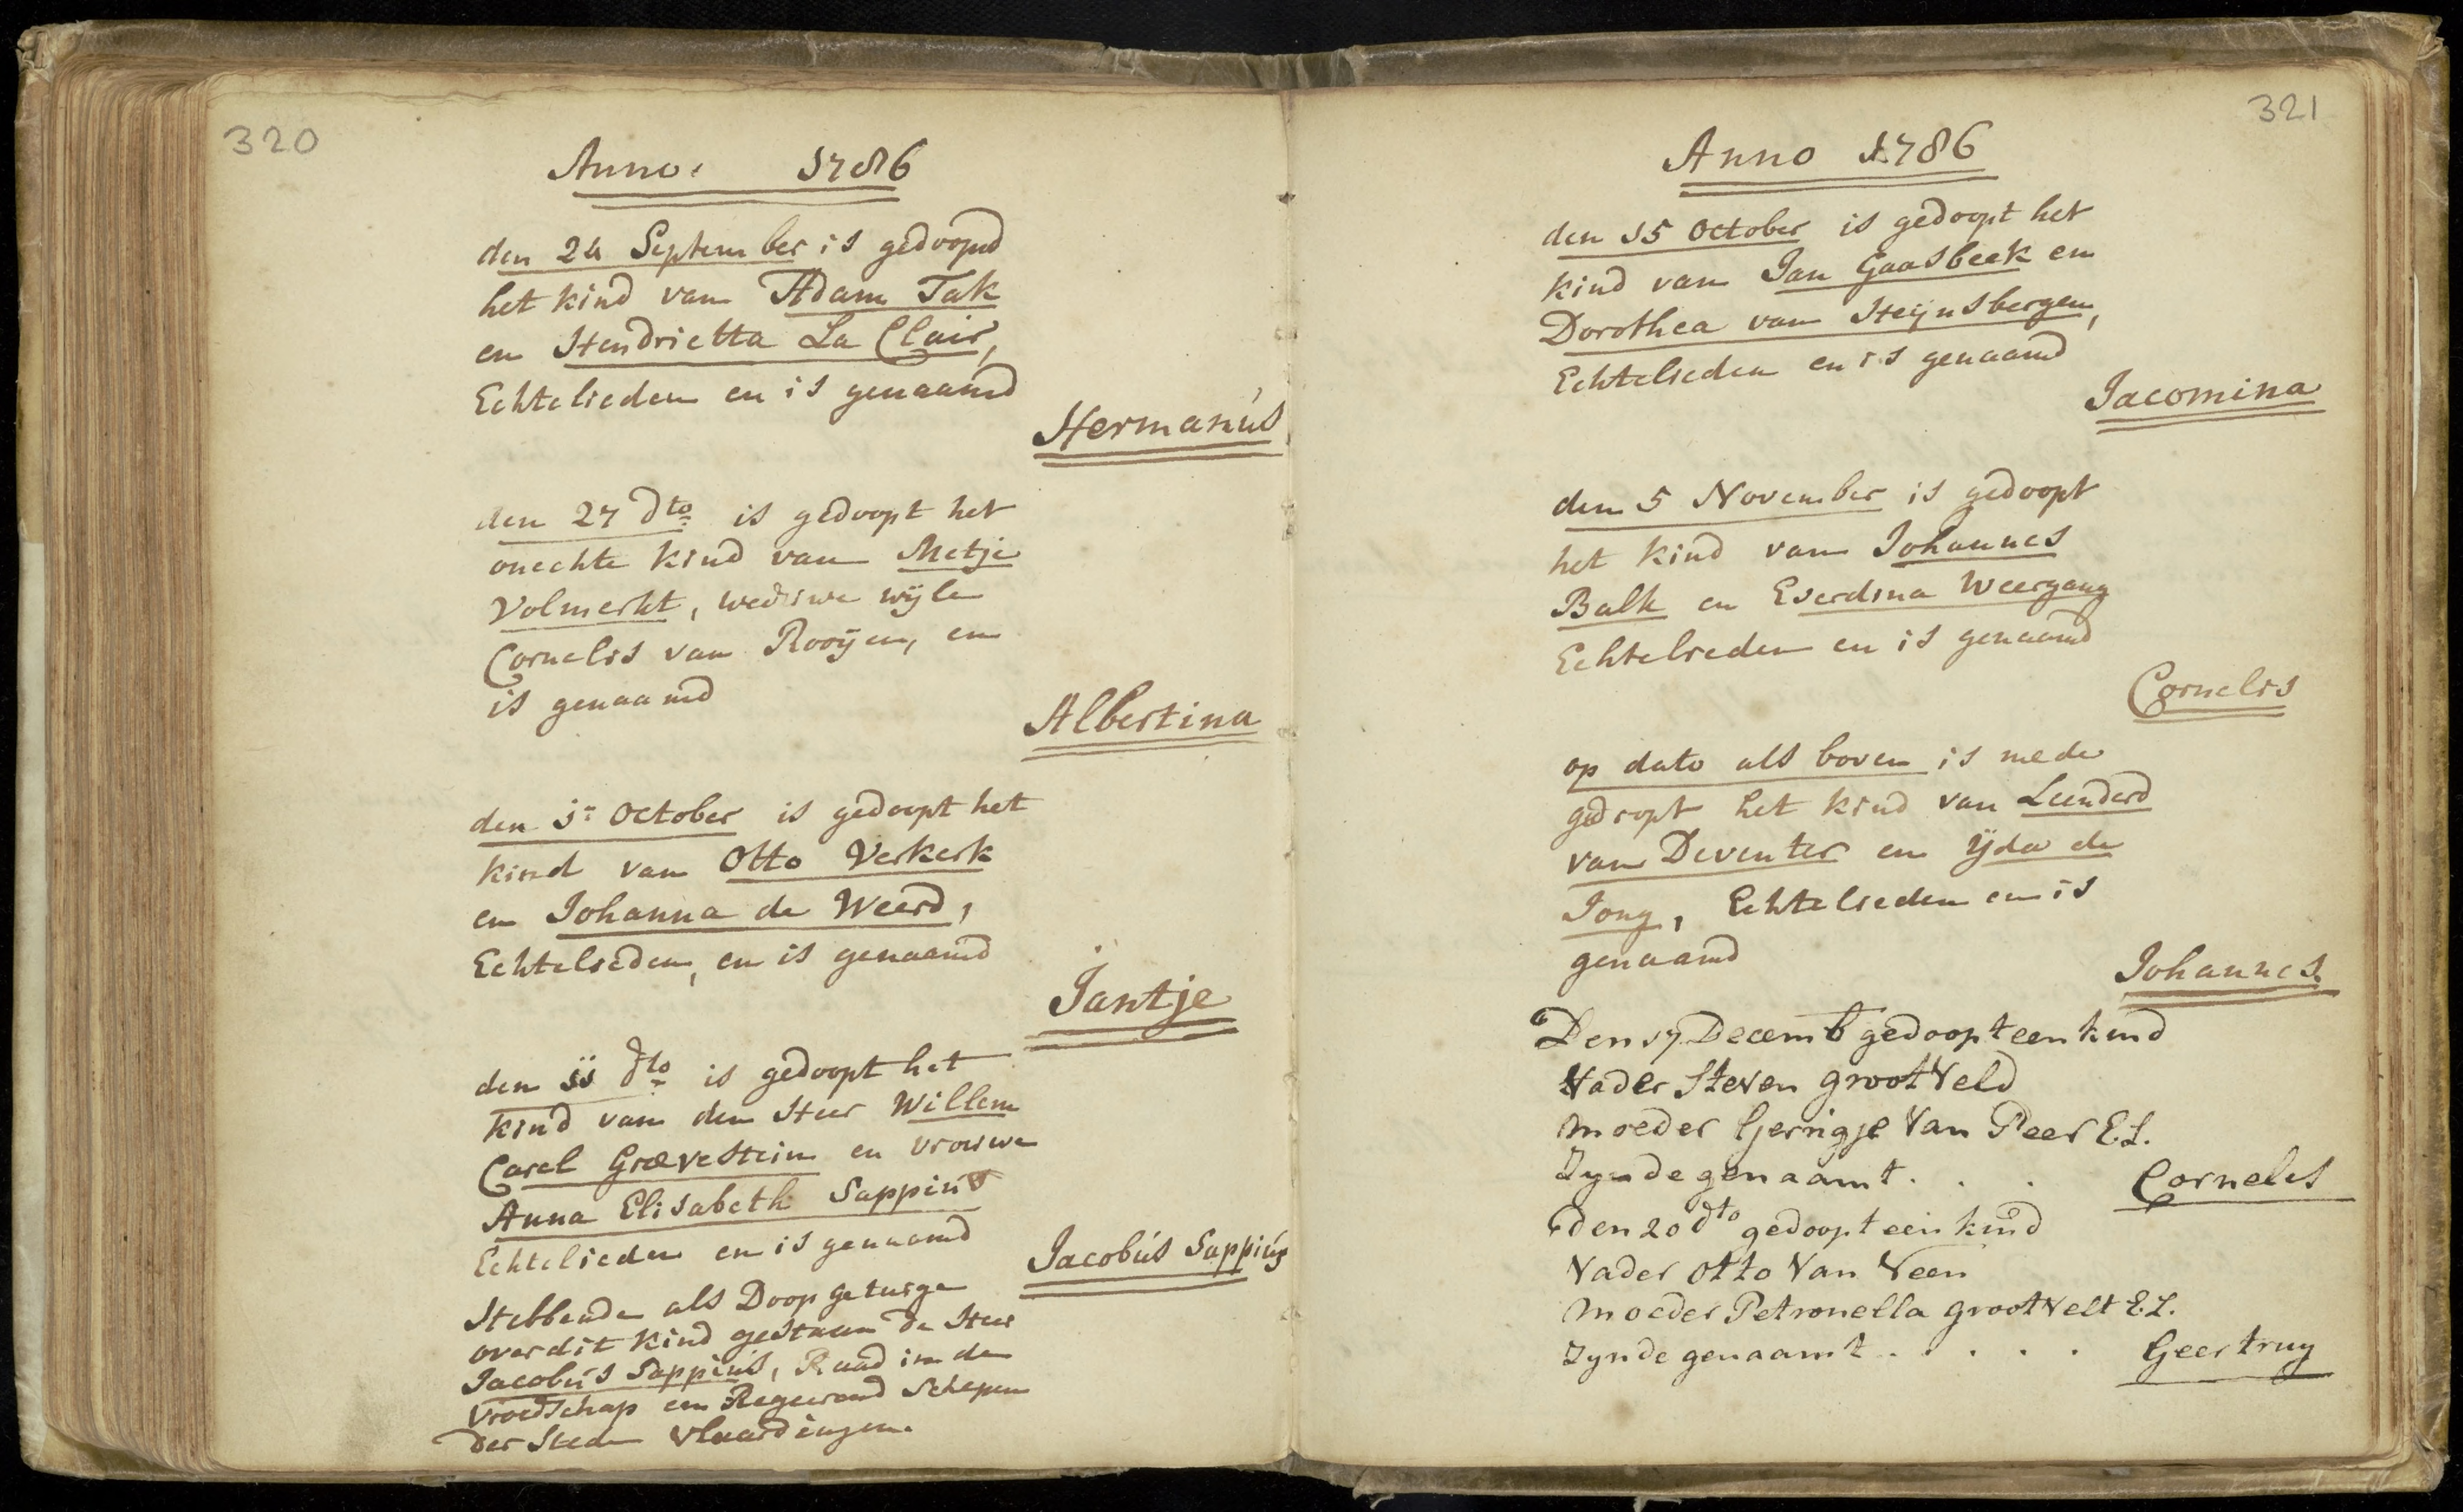 320
Anno. 1786
den 24 September is gedoopd
het kind van Adam Tak
en Hendrietta La Clair,
Echtelieden en is genaamd
Hermanus
den 27 dto is gedoopt het
onechte kind van Metje
Volmerkt, weduwe wijle
Cornelis van Rooijen, en
is genaamd
Albertina
den 1: October is gedoopt het
kind van Otto Verkerk
en Johanna de Weerd,
Echtelieden, en is genaamd
Jantje
den 11 dto is gedoopt het
kind van den Heer Willem
Carel Grævestein en vrouwe
Anna Elisabeth Sappius
Echtelieden en is genaamd
Jacobus Sappius
Hebbende als Doop getuige
over dit kind gestaan de Heer
Jacobus Sappius, Raad in de
vroedschap en Regeerend Schepen
der Stede Vlaardingen.
321
Anno 1786
den 15 October is gedoopt het
kind van Jan Gaasbeek en
Dorothea van Heijnsbergen,
Echtelieden en is genaamd
Jacomina
den 5 November is gedoopt
het kind van Johannes
Balk en Everdina Weergang
Echtelieden en is genaamd
Cornelis
op dato als boven is mede
gedoopt het kind van Leenderd
van Deventer en Yda de
Jong, Echtelieden en is
genaamd
Johannes
Den 17 Decemb gedoopt een kind
Vader Steven grootveld
moeder Gerrigje Van Peer E.L.
Zynde genaamt . . .
Cornelis
den 20 dto gedoopt een kind
Vader otto Van Veen
moeder Petronella grootvelt E.L.
Zynde genaamt . . . . .
Geertruy